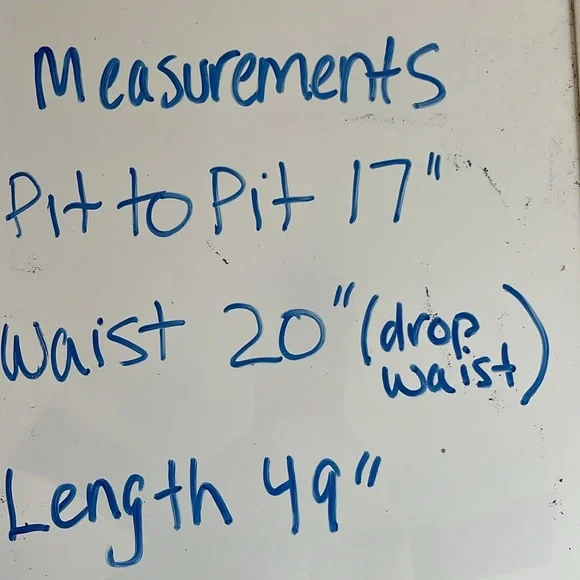 Measurements
Pit to Pit 17"
Waist 20" (drop
waist)
Length 49"